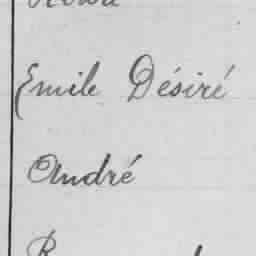 Emile Désiré
André